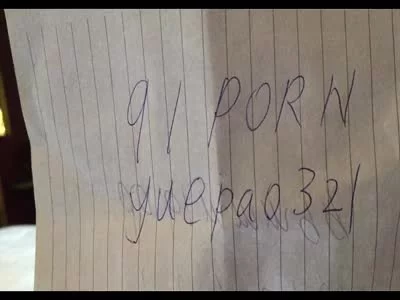 91 PORN
yuepao321